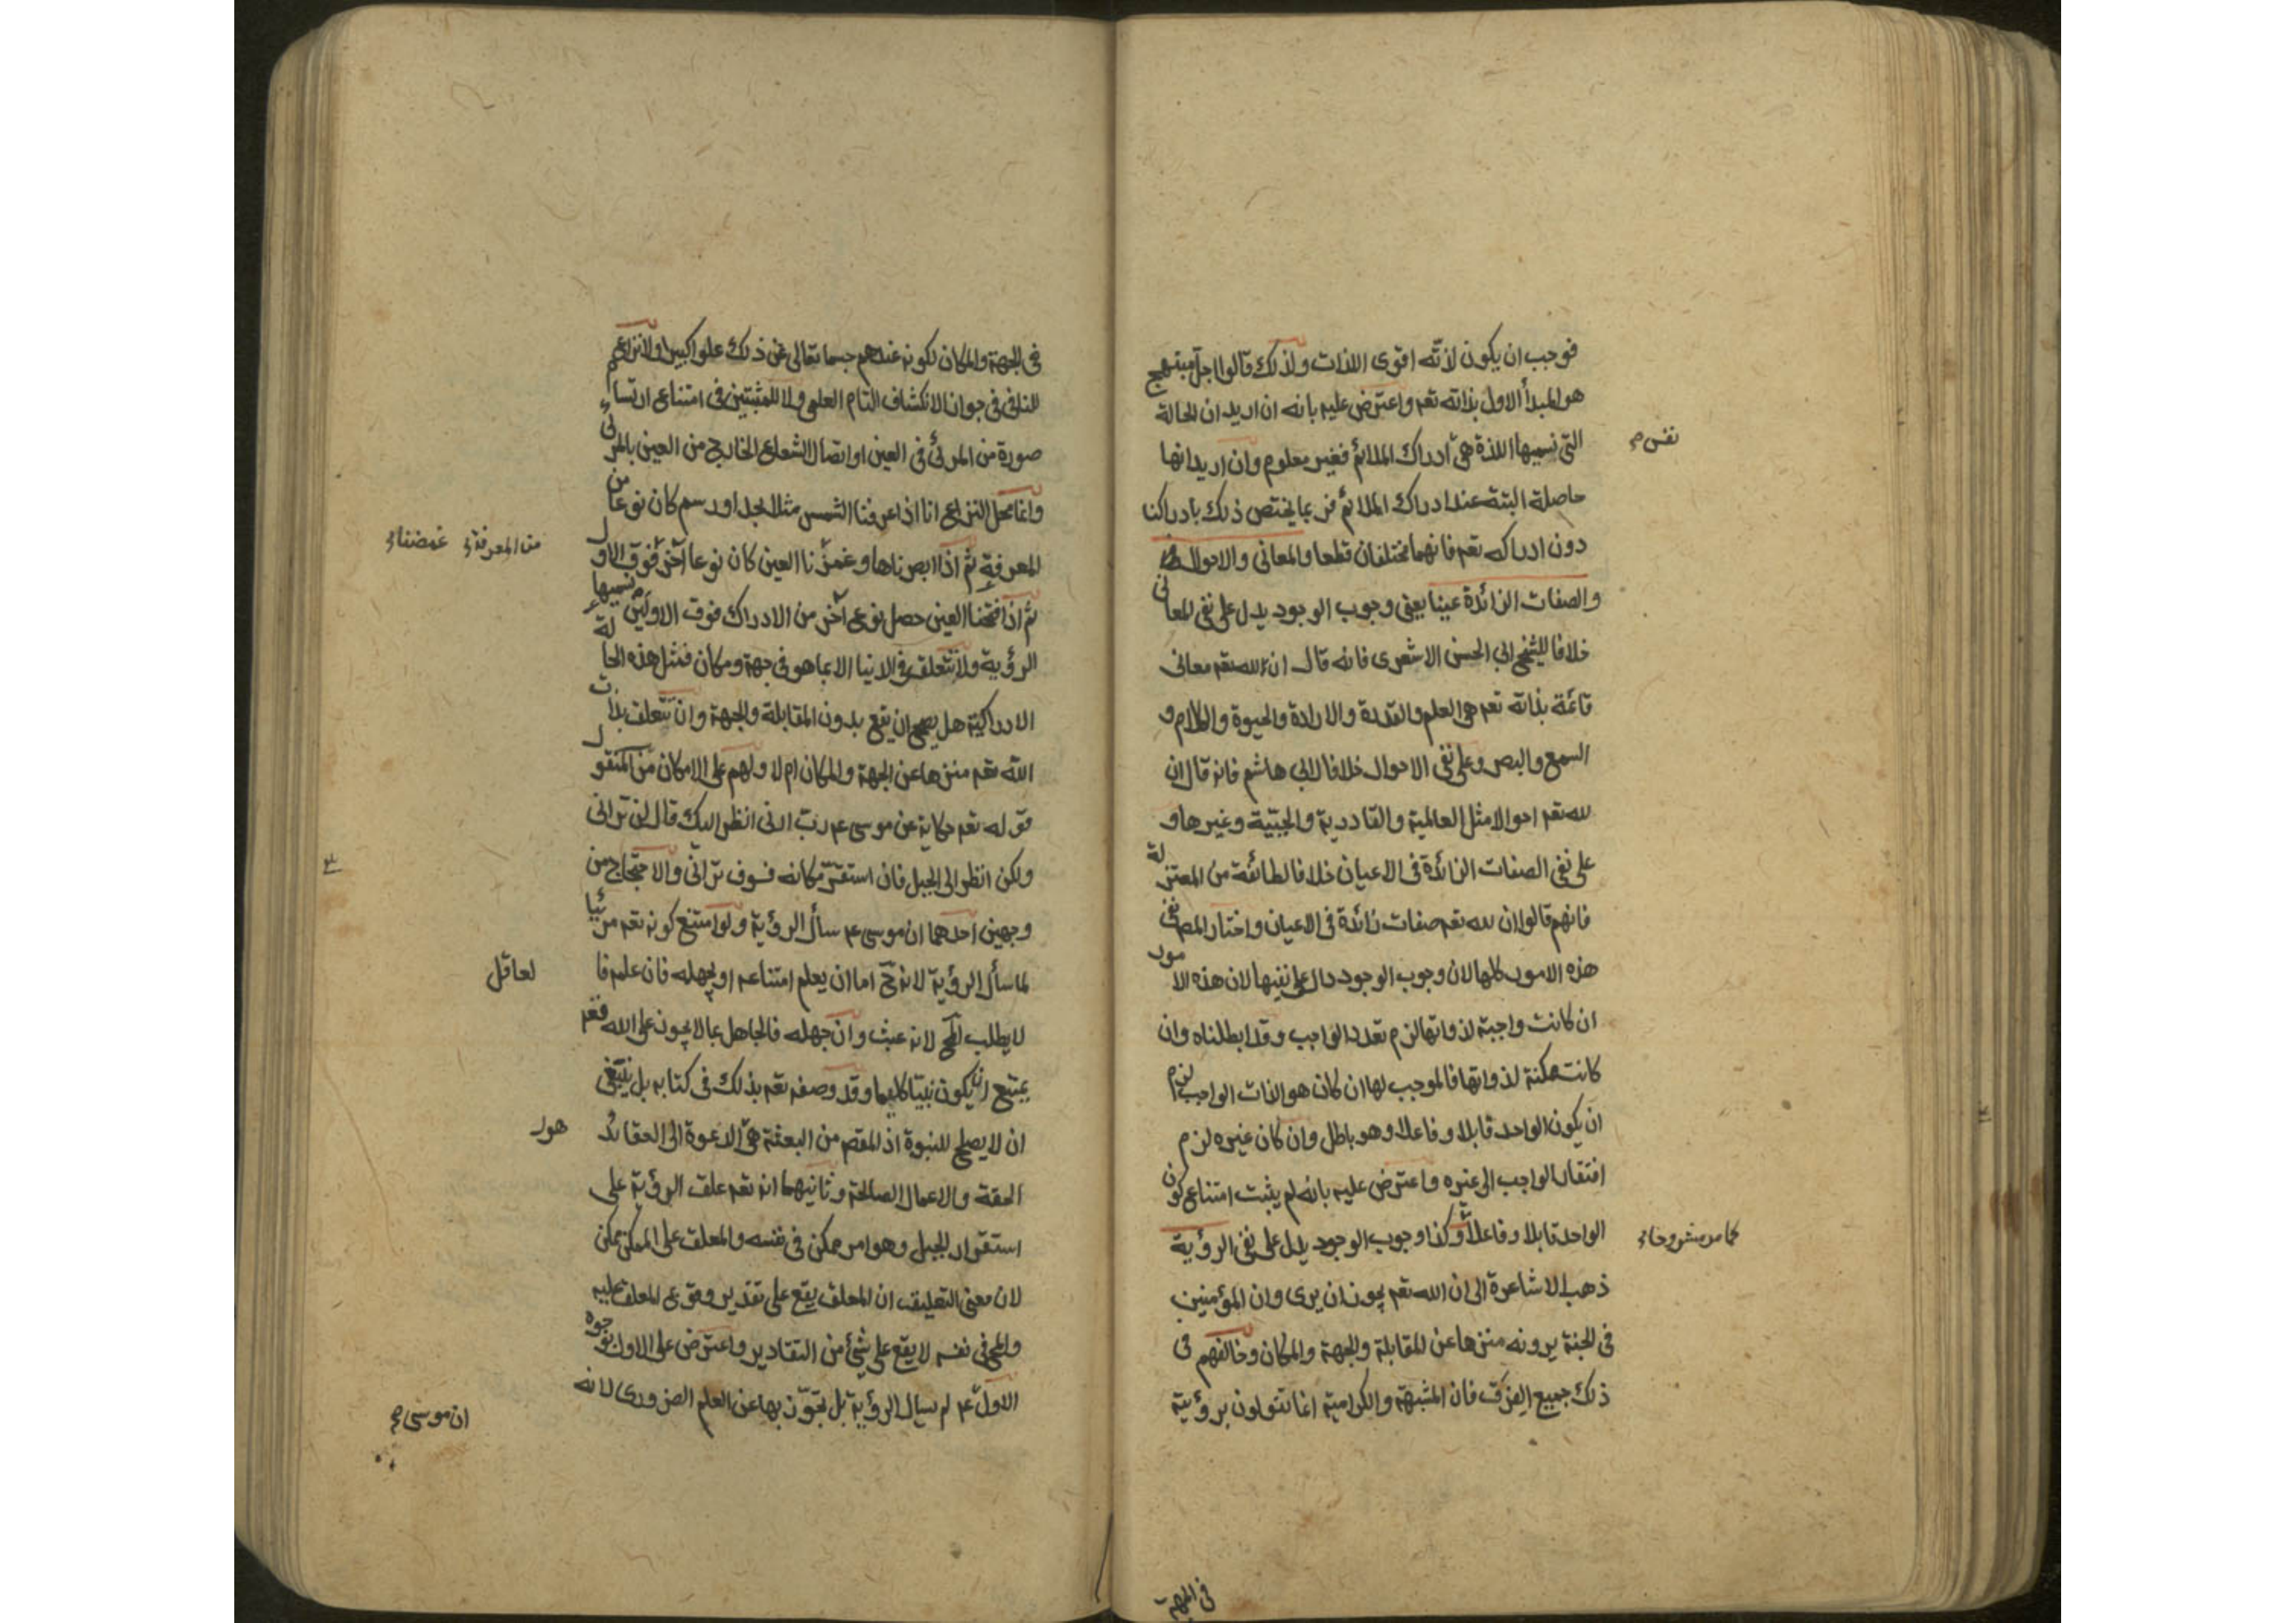 فوجب ان يكون لذته اقوى اللذات ولذلك قالوا اجل مبتهج
هو المبدأ الاول بذاته تعم واعترض عليه بانه ان اريد ان الحالة
التى نسميها اللذة هى ادراك الملائم فغير معلوم وان اريد انها
نفس صح
حاصلة البتة عند ادراك الملائم فربما يختص ذلك بادراكنا
دون ادراكه تعم فانهما مختلفان قطعا والمعانى والاحوال
والصفات الزائدة عينا يعنى وجوب الوجود يدل على نفى المعانى
خلافا للشيخ ابى الحسن الاشعرى فانه قال ان لله تعم معانى
قائمة بذاته تعم هى العلم والقدرة والارادة والحيوة والكلام و
السمع والبصر وعلى نفى الاحوال خلافا لابى هاشم فانه قال ان
لله تعم احوالا مثل العالمية والقادرية والحيية وغيرها و
على نفى الصفات الزائدة فى الاعيان خلافا لطائفة من المعتزلة
فانهم قالوا ان لله تعم صفات زائدة فى الاعيان واختار المص نفى
هذه الامور كلها لان وجوب الوجود دال على نفيها لان هذه الامور
ان كانت واجبة لذواتها لزم تعدد الواجب وقد ابطلناه وان
كانت ممكنة لذواتها فالموجب لها ان كان هو الذات الواجب لزم
ان يكون الواحد قابلا وفاعلا وهو باطل وان كان غيره لزم
افتقار الواجب الى غيره واعترض عليه بانه لم يثبت امتناع كون
الواحد قابلا وفاعلا وكذا وجوب الوجود يدل على نفى الرؤية
كما مر مشروحا صح
ذهب الاشاعرة الى ان الله تعم يجوز ان يرى وان المؤمنين
فى الجنة يرونه منزها عن المقابلة والجهة والمكان وخالفهم فى
ذلك جميع الفرق فان المشبهة والكرامية انما يقولون برؤيته
فى الجهة
فى الجهة والمكان لكونه عندهم جسما تعالى عن ذلك علوا كبيرا ولا نزاع
للنافى فى جواز الانكشاف التام العلمى ولا للمثبتين فى امتناع ارتسام
صورة من المرئى فى العين او اتصال الشعاع الخارج من العين بالمرئى
وانما محل النزاع انا اذا عرفنا الشمس مثلا بحد او رسم كان نوعا من
المعرفة ثم اذا ابصرناها وغمزنا العين كان نوعا آخر فوق الاول
من المعرفة غمضنا
ثم اذا فتحنا العين حصل نوع آخر من الادراك فوق الاولين نسميها
الرؤية ولا تتعلق فى الدنيا الا بما هو فى جهة ومكان فمثل هذه الحالة
الادراكية هل يصح ان يقع بدون المقابلة والجهة وان يتعلق بذات
الله تعم منزها عن الجهة والمكان ام لا ولهم على الامكان من المنقول
قوله تعم حكاية عن موسى عم رب ارنى انظر اليك قال لن ترانى
ولكن انظر الى الجبل فان استقر مكانه فسوف ترانى والاحتجاج من
وجهين احدهما ان موسى عم سأل الرؤية ولو امتنع كونه تعم مرئيا
لما سأل الرؤية لانه ح اما ان يعلم امتناعه او يجهله فان علمه فا
لعاقل
لا يطلب المح لانه عبث وان جهله فالجاهل بما لا يجوز على الله تعم
يمتنع ان يكون نبيا كليما وقد وصفه تعم بذلك فى كتابه بل ينبغى
ان لا يصلح للنبوة اذ المقصم من البعثة هى الدعوة الى العقائد
هو
الحقة والاعمال الصالحة وثانيهما انه تعم علق الرؤية على
استقرار الجبل وهو امر ممكن فى نفسه والمعلق على الممكن ممكن
لان معنى التعليق ان المعلق يقع على تقدير وقوع المعلق عليه
والمح فى نفسه لا يقع على شئ من التقادير واعترض على الاول بوجوه
الاول عم لم يسأل الرؤية بل تجوز بها عن العلم الضرورى لانه
ان موسى صح